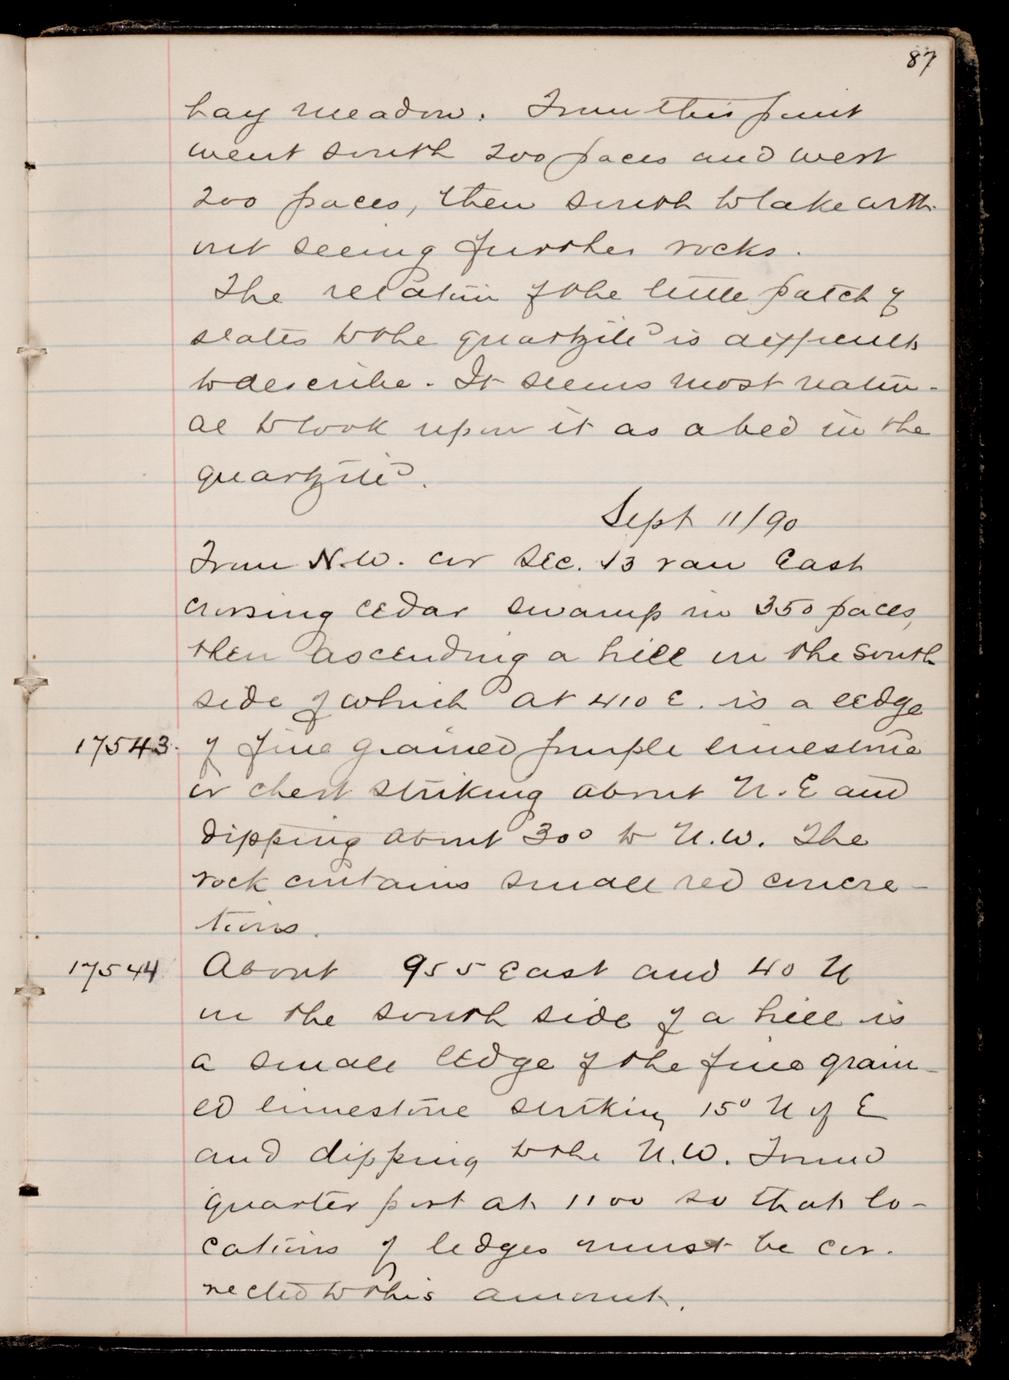 87
hay meadow. From this point
went south 200 paces and west
200 paces, then south to lake with-
out seeing further rocks.
The relation of the little patch of
slates to the quartzite is difficult
to describe. It seems most natur-
al to look upon it as a bed in the
quartzite.
Sept 11/90
From N.W. cor Sec. 13 ran East
crossing cedar swamp in 350 paces,
then ascending a hill on the south
side of which at 410 E. is a ledge
17543. of fine grained purple limestone
or chert striking about N.E and
dipping about 30° to N.W. The
rock contains small red concre-
tions.
17544 About 955 East and 40 N
on the south side of a hill is
a small ledge of the fine grain-
ed limestone striking 15° N of E
and dipping to the N.W. Found
quarter post at 1100 so that lo-
cations of ledges must be cor-
rected to this amount.